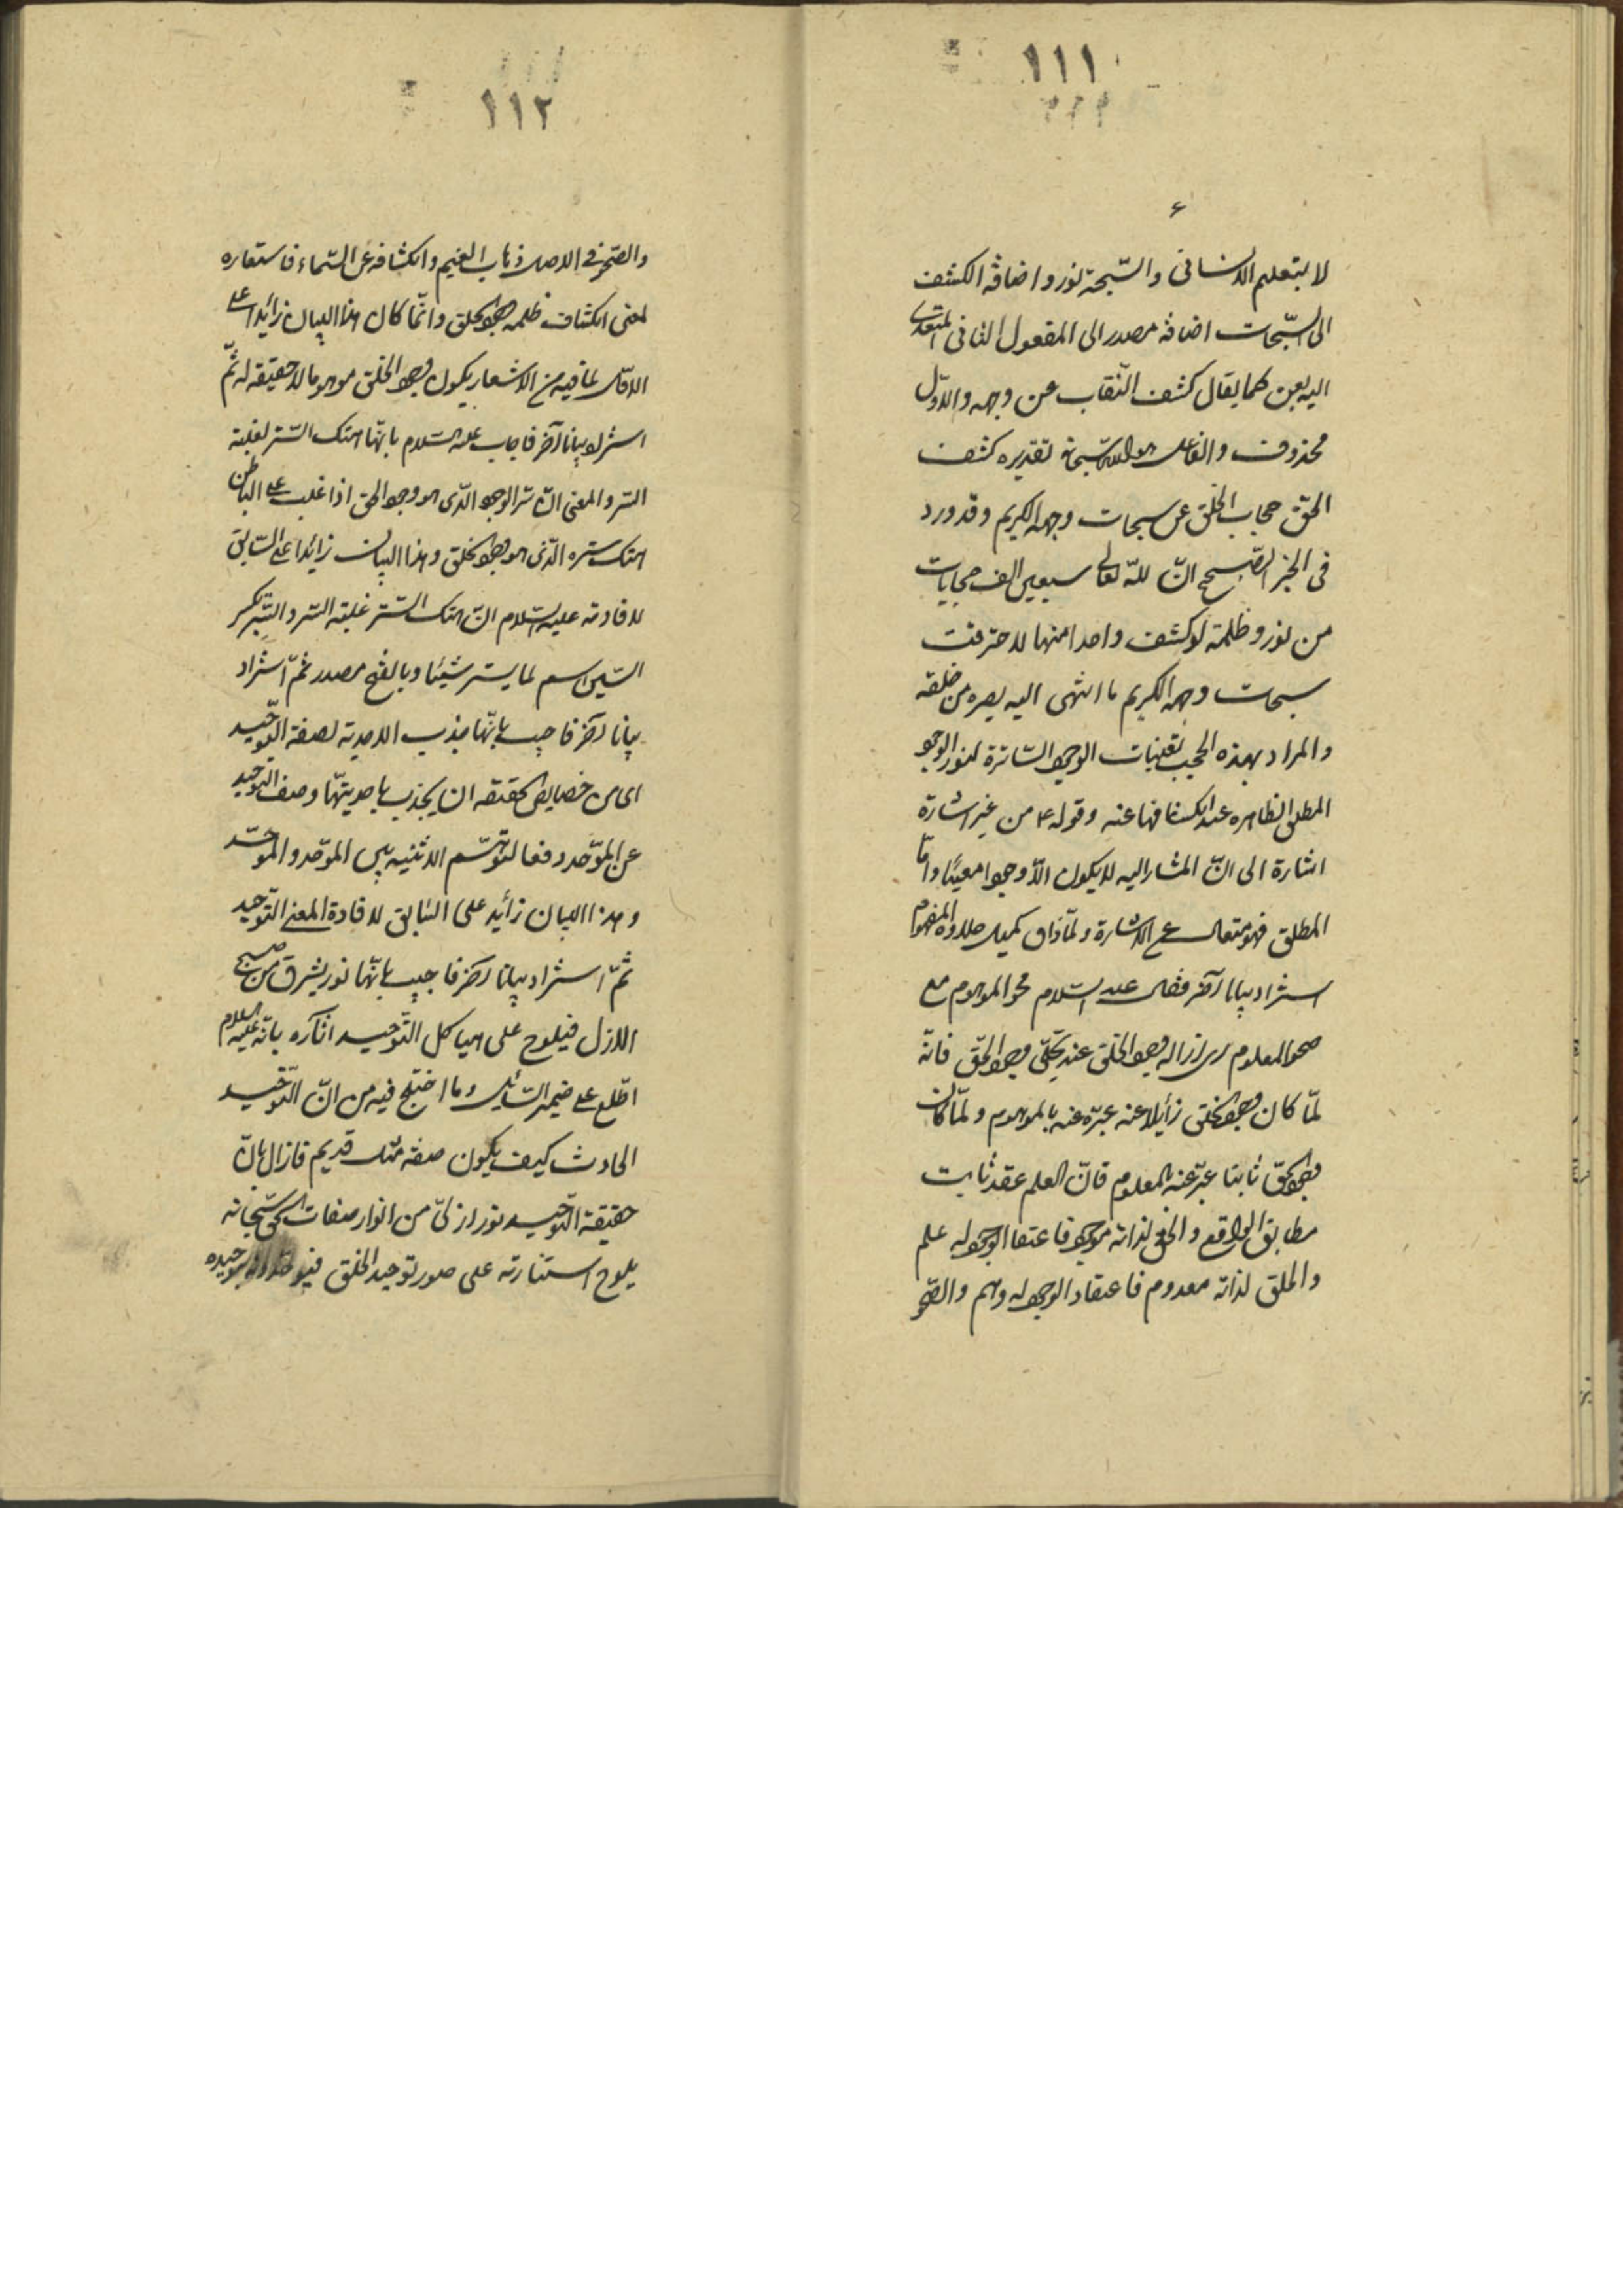 ١١١
لا بتعلم الانسانى والسّبحة نور واضافة الكشف
الى السّبحات اضافة مصدر الى المفعول الثانى المتعدى
اليه بعن كما يقال كشف النّقاب عن وجهه والاوّل
محذوف والفاعل هو اللّه سبحانه تقديره كشف
الحق حجاب الخلق عن سبحات وجهه الكريم وقد ورد
فى الخبر الصّحيح انّ للّه تعالى سبعين الف حجابات
من نور وظلمة لو كشف واحدا منها لاحترقت
سبحات وجهه الكريم ما انتهى اليه بصره من خلقه
والمراد بهذه الحجب تعينات الوجود السّاترة لنور الوجود
المطلق الظاهره عند انكشافها عنه وقوله ع من غير اشارة
اشارة الى انّ المشار اليه لا يكون الّا وجودا معينًا وامّا
المطلق فهو متعال عن الاشارة ولمّا ذاق كميل حلاوة المفهوم
استزاد بيانا آخر فقال عليه السّلام محو الموهوم مع
صحو المعلوم اى ازالة وجود الخلق عند تجلّى وجود الحق فانّه
لمّا كان وجود الخلق زائلا عنه عبّر عنه بالموهوم ولمّا كان
وجود الحق ثابتا عبّر عنه بالمعلوم فانّ العلم عقد ثابت
مطابق الواقع والحق لذاته موجود فاعتقاد الوجود له علم
والخلق لذاته معدوم فاعتقاد الوجود له وهم والصّحو
١١٢
والصّحو فى الاصل ذهاب الغيم وانكشافه عن السّماء فاستعاره
لمعنى انكشاف ظلمة وجود الخلق وانّما كان هذا البيان زائدا على
الاوّل لما فيه من الاشعار بكون وجود الخلق موهوما لا حقيقة له ثمّ
استزاد بيانا آخر فاجاب عليه السّلام بانّها هتك السّتر لغلبة
السّر والمعنى انّ سّر الوجود الّذى هو وجود الحق اذا غلب على الباطن
هتك ستره الّذى هو وجود الخلق وهذا البيان زائدا على السّابق
لافادته عليه السّلام انّ هتك السّتر غلبة السّر والسّتر بكسر
السّين اسم لما يستر شيئا وبالفتح مصدر ثمّ استزاد
بيانا آخر فاجيب بانّها جذب الاحدية لصفة التّوحيد
اى من خصايص الحقيقه ان يجذب باحديتها وصف التّوحيد
عن الموّحد دفعا لتوهّم الاثنية بين الموّحد والموحّد
وهذا البيان زائد على السّابق لافادة المعنى التّوحيد
ثمّ استزاد بيانا آخر فاجيب بانّها نور يشرق من صبح
الازل فيلوح على هياكل التّوحيد آثاره بانّه عليه السلام
اطّلع على ضمير السّائل وما اختلج فيه من انّ التّوحيد
الحادث كيف يكون صفة قديم فازال بانّ
حقيقة التّوحيد نور ازلىّ من انوار صفات الحق سّبحانه
يلوح استنارته على صور توحيد الخلق بتوحيده